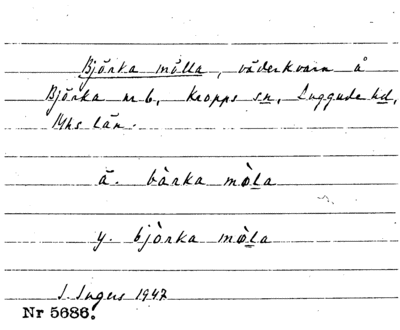 Björka mölla, väderkvarn å
Björka nr 6, Kropps sn, Luggude hd,
Mhs län.
ä. bàrka mòla
y. bjòrka mòla
I. Ingers 1947
Nr 5686.